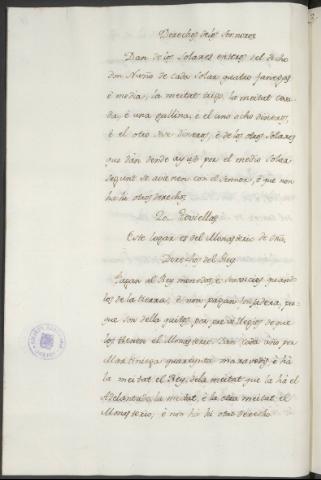 Derechos de los Sennores
Dan de los Solares enteros del dicho
don Nunno de cada solar quatro fanegas
é media, la meitat trigo, la meitat ceva-
da, é una gallina, é el uno ocho dineros,
é el otro nueve dineros, é de los otros Solares
que dan dende ayuso por el medio Solar
segunt se avienen con el Sennor, é que non
há hi otros derechos.
Este logar es del Monasterio de Onna.
Derechos del Rey
Pagan al Rey monedas, é servicios quando
los de la tierra, é non pagan fonsadera, por-
que son dello quitos por previllegios de que
los tienen el Monesterio. Dan cada anno por
Martiniega quarenta maravedis é há
la meitat el Rey, de la meitat que la há el
Adelantado la meitat, é la otra meitat el
Monesterio, é non há hi otro derecho